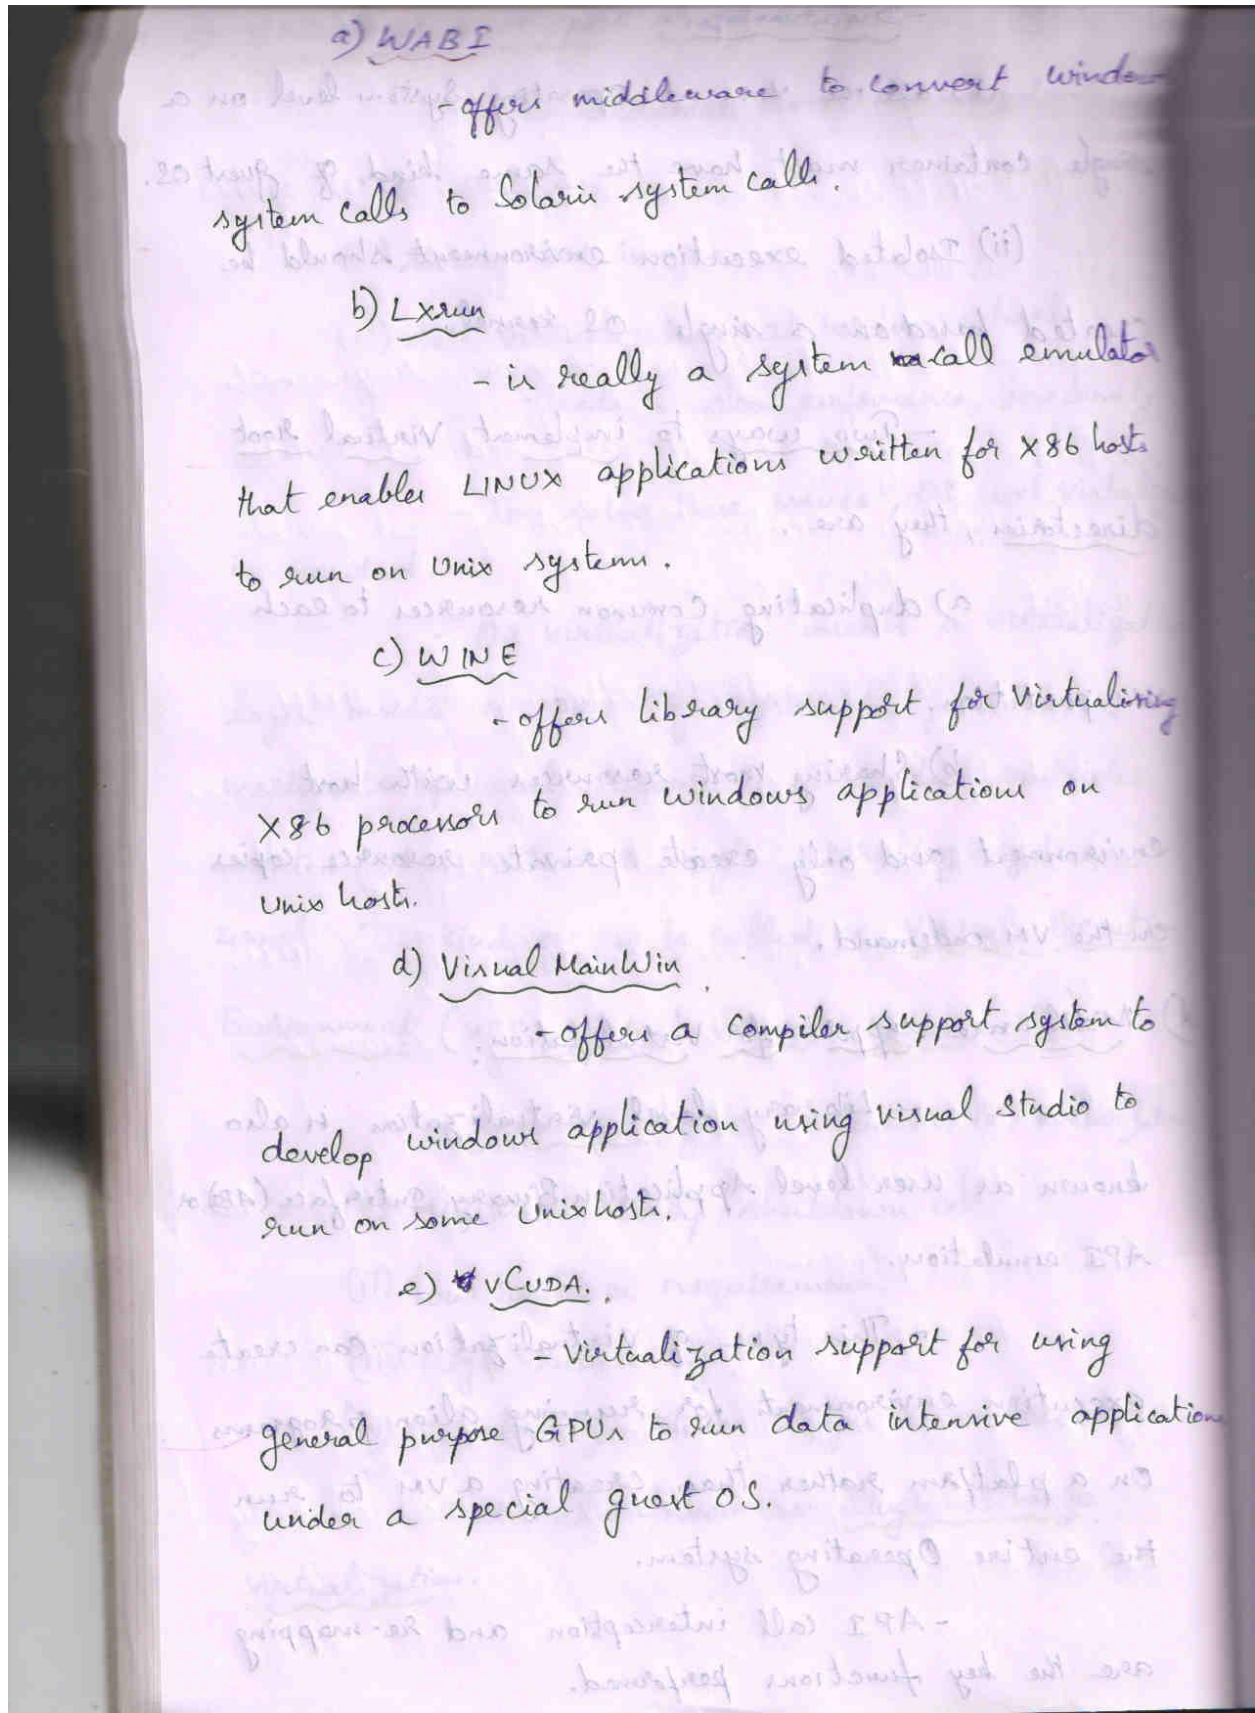 a) WABI
- offers middleware to convert window
system calls to Solaris system calls.
b) Lxrun
- is really a system call emulator
that enables LINUX applications written for X86 hosts
to run on Unix systems.
c) WINE
- offers library support for virtualising
X86 processors to run windows applications on
Unix hosts.
d) Visual MainWin
- offers a compiler support system to
develop windows application using visual studio to
run on some Unix hosts.
e) vCUDA.
- virtualization support for using
general purpose GPUs to run data intensive application
under a special guest OS.